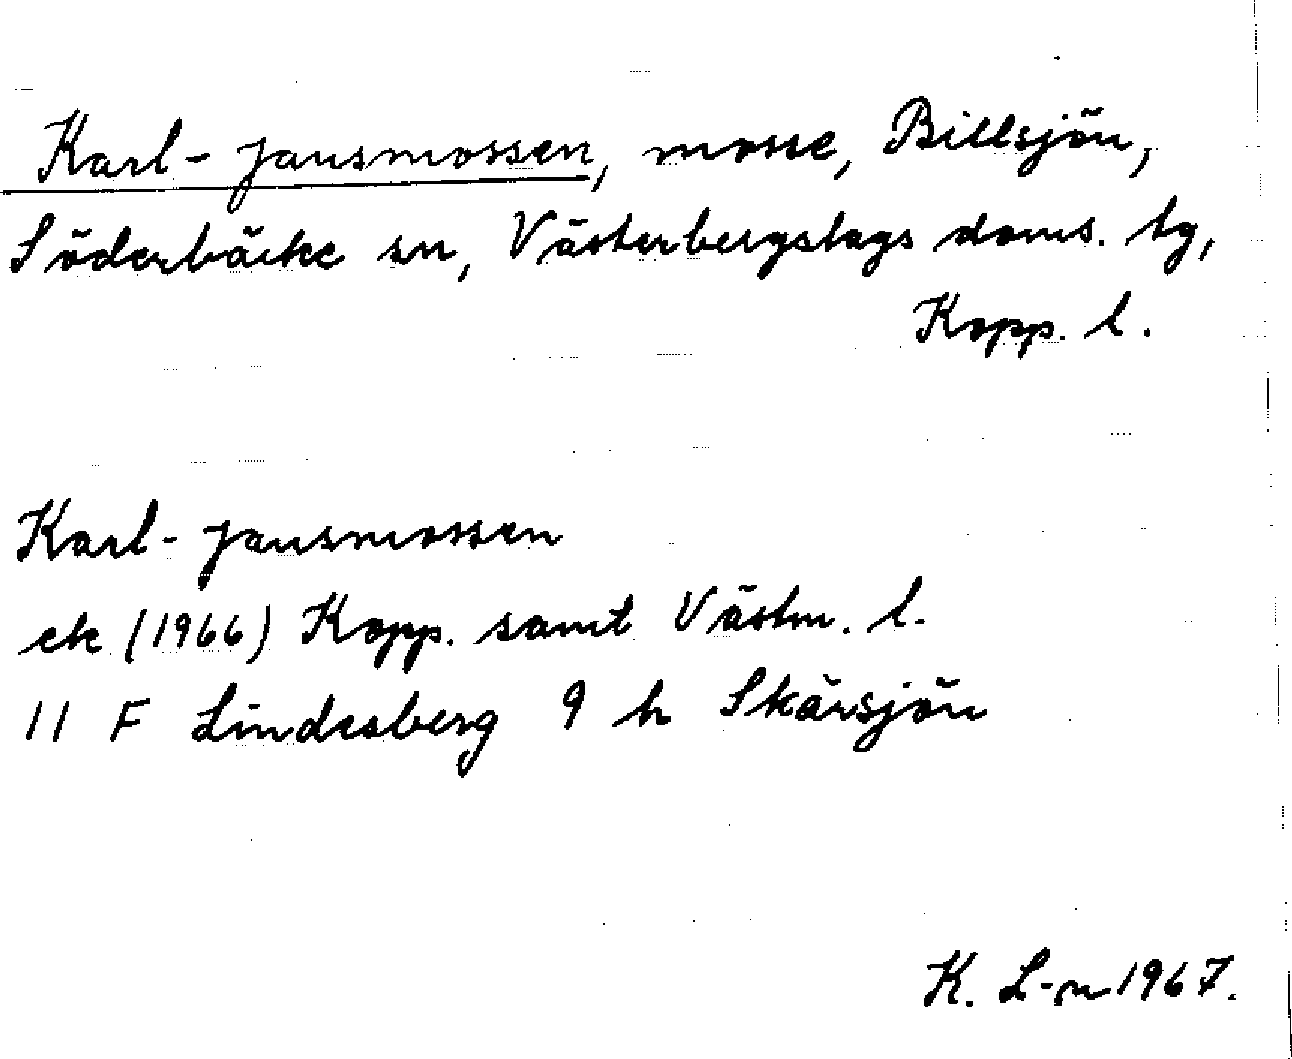 Karl-Jansmossen, mosse, Billsjön,
Söderbärke sn, Västerbergslags doms. tg,
Kopp. l.
Karl-Jansmossen
ek (1966) Kopp. samt Västm. l.
11 F Lindesberg 9 h Skärsjön
K. L-n 1967.